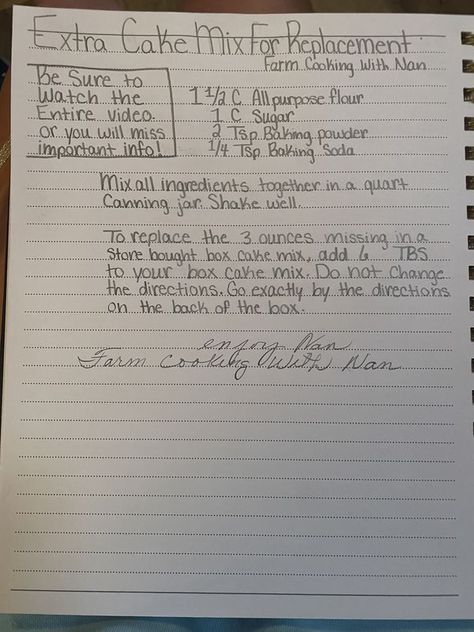 Extra Cake Mix For Replacement
Farm Cooking With Nan
Be Sure to
Watch the
Entire video.
or you will miss
important info!
1 1/2 C All purpose flour
1 C Sugar
2 Tsp Baking powder
1/4 Tsp Baking Soda
Mix all ingredients together in a quart
Canning jar. Shake well.
To replace the 3 ounces missing in a
Store bought box cake mix, add 6 TBS
to your box cake mix. Do not Change
the directions. Go exactly by the directions
on the back of the box.
enjoy Nan
Farm Cooking With Nan